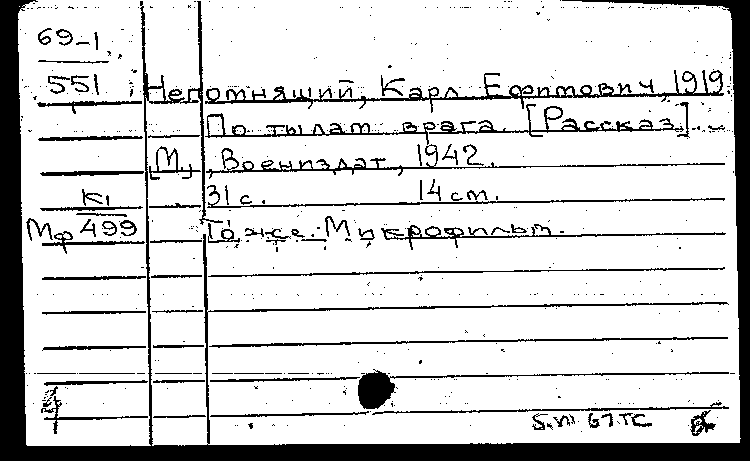 69-1
551
Непомнящий, Карл Ефимович, 1919
По тылам врага. [Рассказ]. --
[М.], Воениздат, 1942.
31 с. 14 см.
К1
Мф 499
То же. Микрофильм.
5.VII 67 ТС